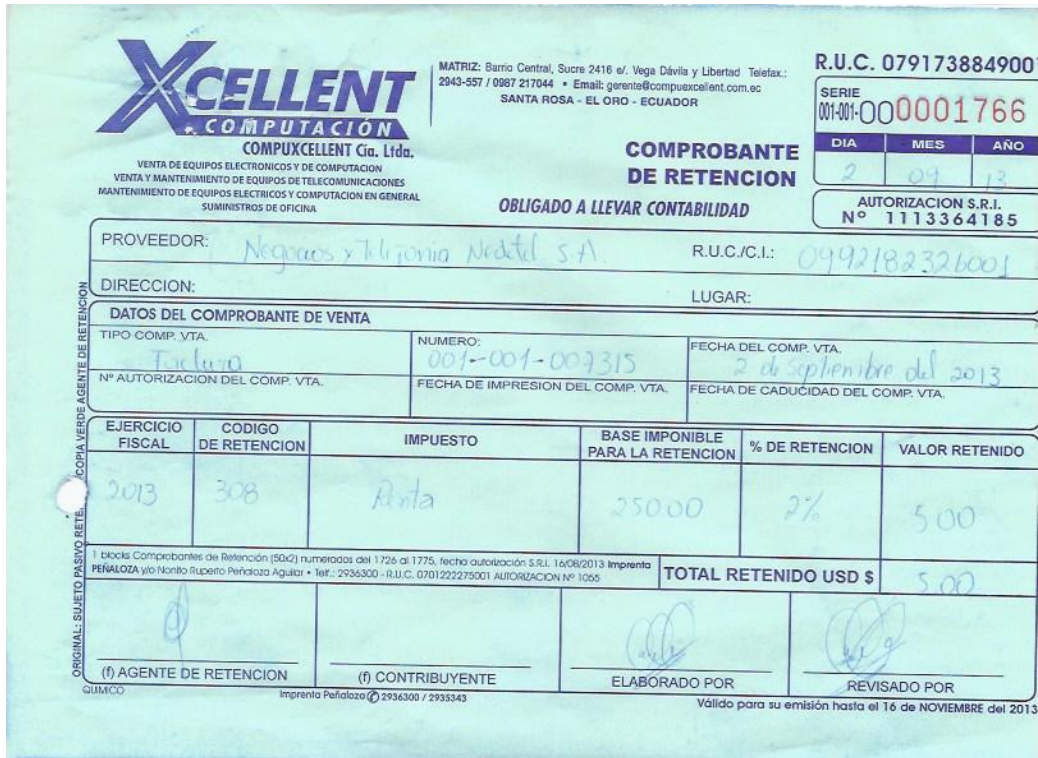 XCELLENT
COMPUTACIÓN
COMPUXCELLENT Cía. Ltda.
VENTA DE EQUIPOS ELECTRONICOS Y DE COMPUTACION
VENTA Y MANTENIMIENTO DE EQUIPOS DE TELECOMUNICACIONES
MANTENIMIENTO DE EQUIPOS ELECTRICOS Y COMPUTACION EN GENERAL
SUMINISTROS DE OFICINA
MATRIZ: Barrio Central, Sucre 2416 e/. Vega Dávila y Libertad Telefax.:
2943-557 / 0987 217044 • Email: gerente@compuexcellent.com.ec
SANTA ROSA - EL ORO - ECUADOR
COMPROBANTE
DE RETENCION
OBLIGADO A LLEVAR CONTABILIDAD
R.U.C. 0791738849001
SERIE
001-001-000001766
DIA MES AÑO
2 09 13
AUTORIZACION S.R.I.
Nº 1113364185
PROVEEDOR: Negocios y Telefonia Nedetel S.A. R.U.C./C.I.: 0992182326001
DIRECCION: LUGAR:
DATOS DEL COMPROBANTE DE VENTA
TIPO COMP. VTA. NUMERO: FECHA DEL COMP. VTA.
Factura 001-001-007315 2 de Septiembre del 2013
Nº AUTORIZACION DEL COMP. VTA. FECHA DE IMPRESION DEL COMP. VTA. FECHA DE CADUCIDAD DEL COMP. VTA.
EJERCICIO FISCAL CODIGO DE RETENCION IMPUESTO BASE IMPONIBLE PARA LA RETENCION % DE RETENCION VALOR RETENIDO
2013 308 Renta 250.00 2% 5.00
1 blocks Comprobantes de Retención (50x2) numerados del 1726 al 1775, fecha autorización S.R.I. 16/08/2013 Imprenta
PEÑALOZA y/o Nonito Ruperto Peñaloza Aguilar • Telf.: 2936300 - R.U.C. 0701222275001 AUTORIZACION Nº 1055
TOTAL RETENIDO USD $ 5.00
(f) AGENTE DE RETENCION (f) CONTRIBUYENTE ELABORADO POR REVISADO POR
QUIMICO Imprenta Peñaloza 2936300 / 2935343 Válido para su emisión hasta el 16 de NOVIEMBRE del 2013
ORIGINAL: SUJETO PASIVO RETE COPIA VERDE AGENTE DE RETENCION